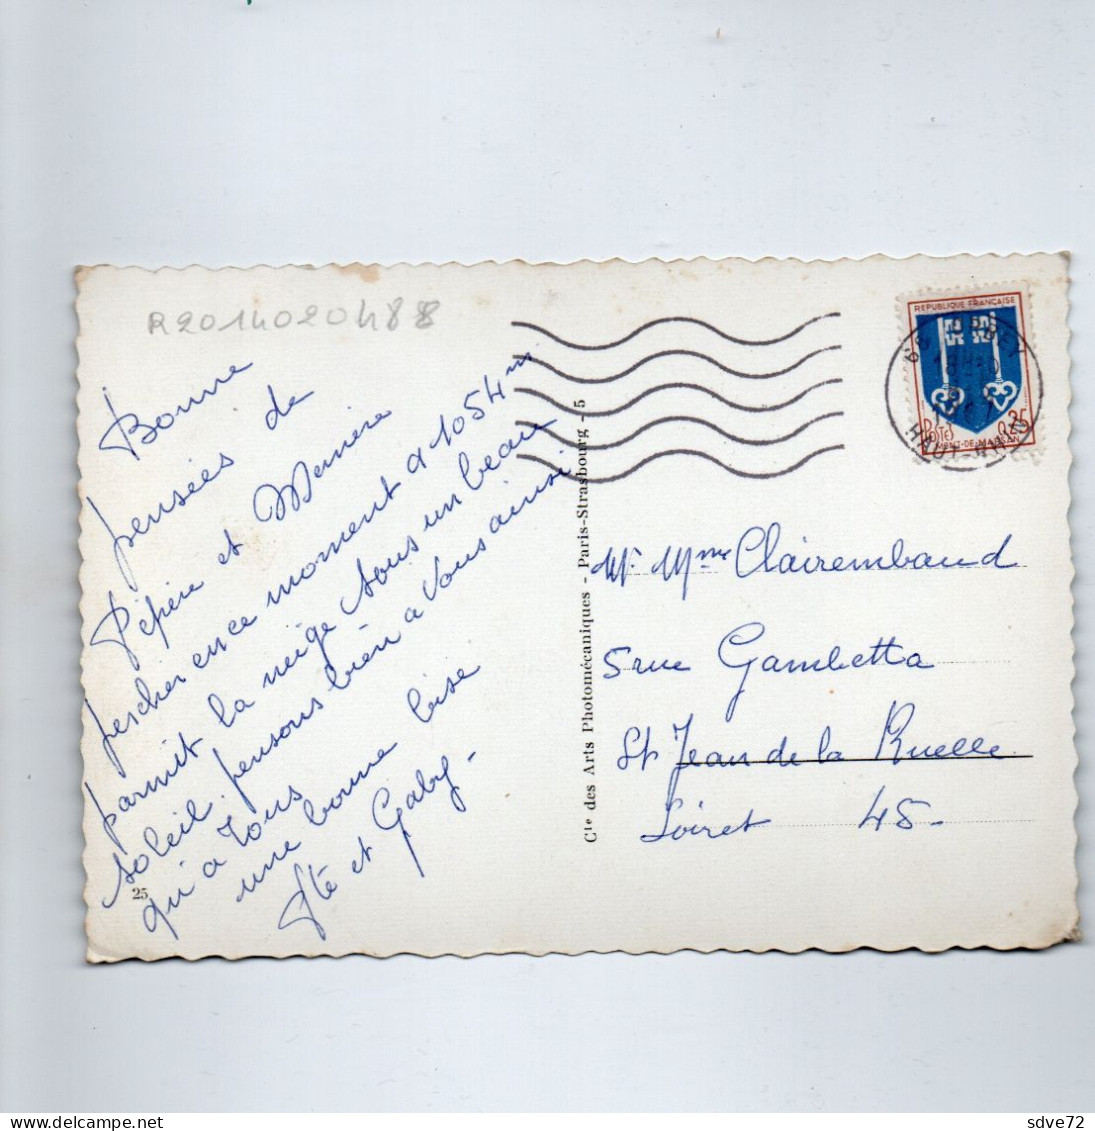 R2014020488
Bonne
pensées de
Pépère et Mémère
perchés en ce moment a 1054m
parmit la neige sous un beau
soleil. pensons bien a vous ainsi
qu'a tous
une bonne bise
et Gaby -
25
Cie des Arts Photomécaniques - Paris-Strasbourg - 5
REPUBLIQUE FRANÇAISE
POSTES 0,25
MONT-DE-MARSAN
68
HAUT-RHIN
Mr Mme Clairembaud
5 rue Gambetta
St Jean de la Ruelle
Loiret 45 -
sdve72